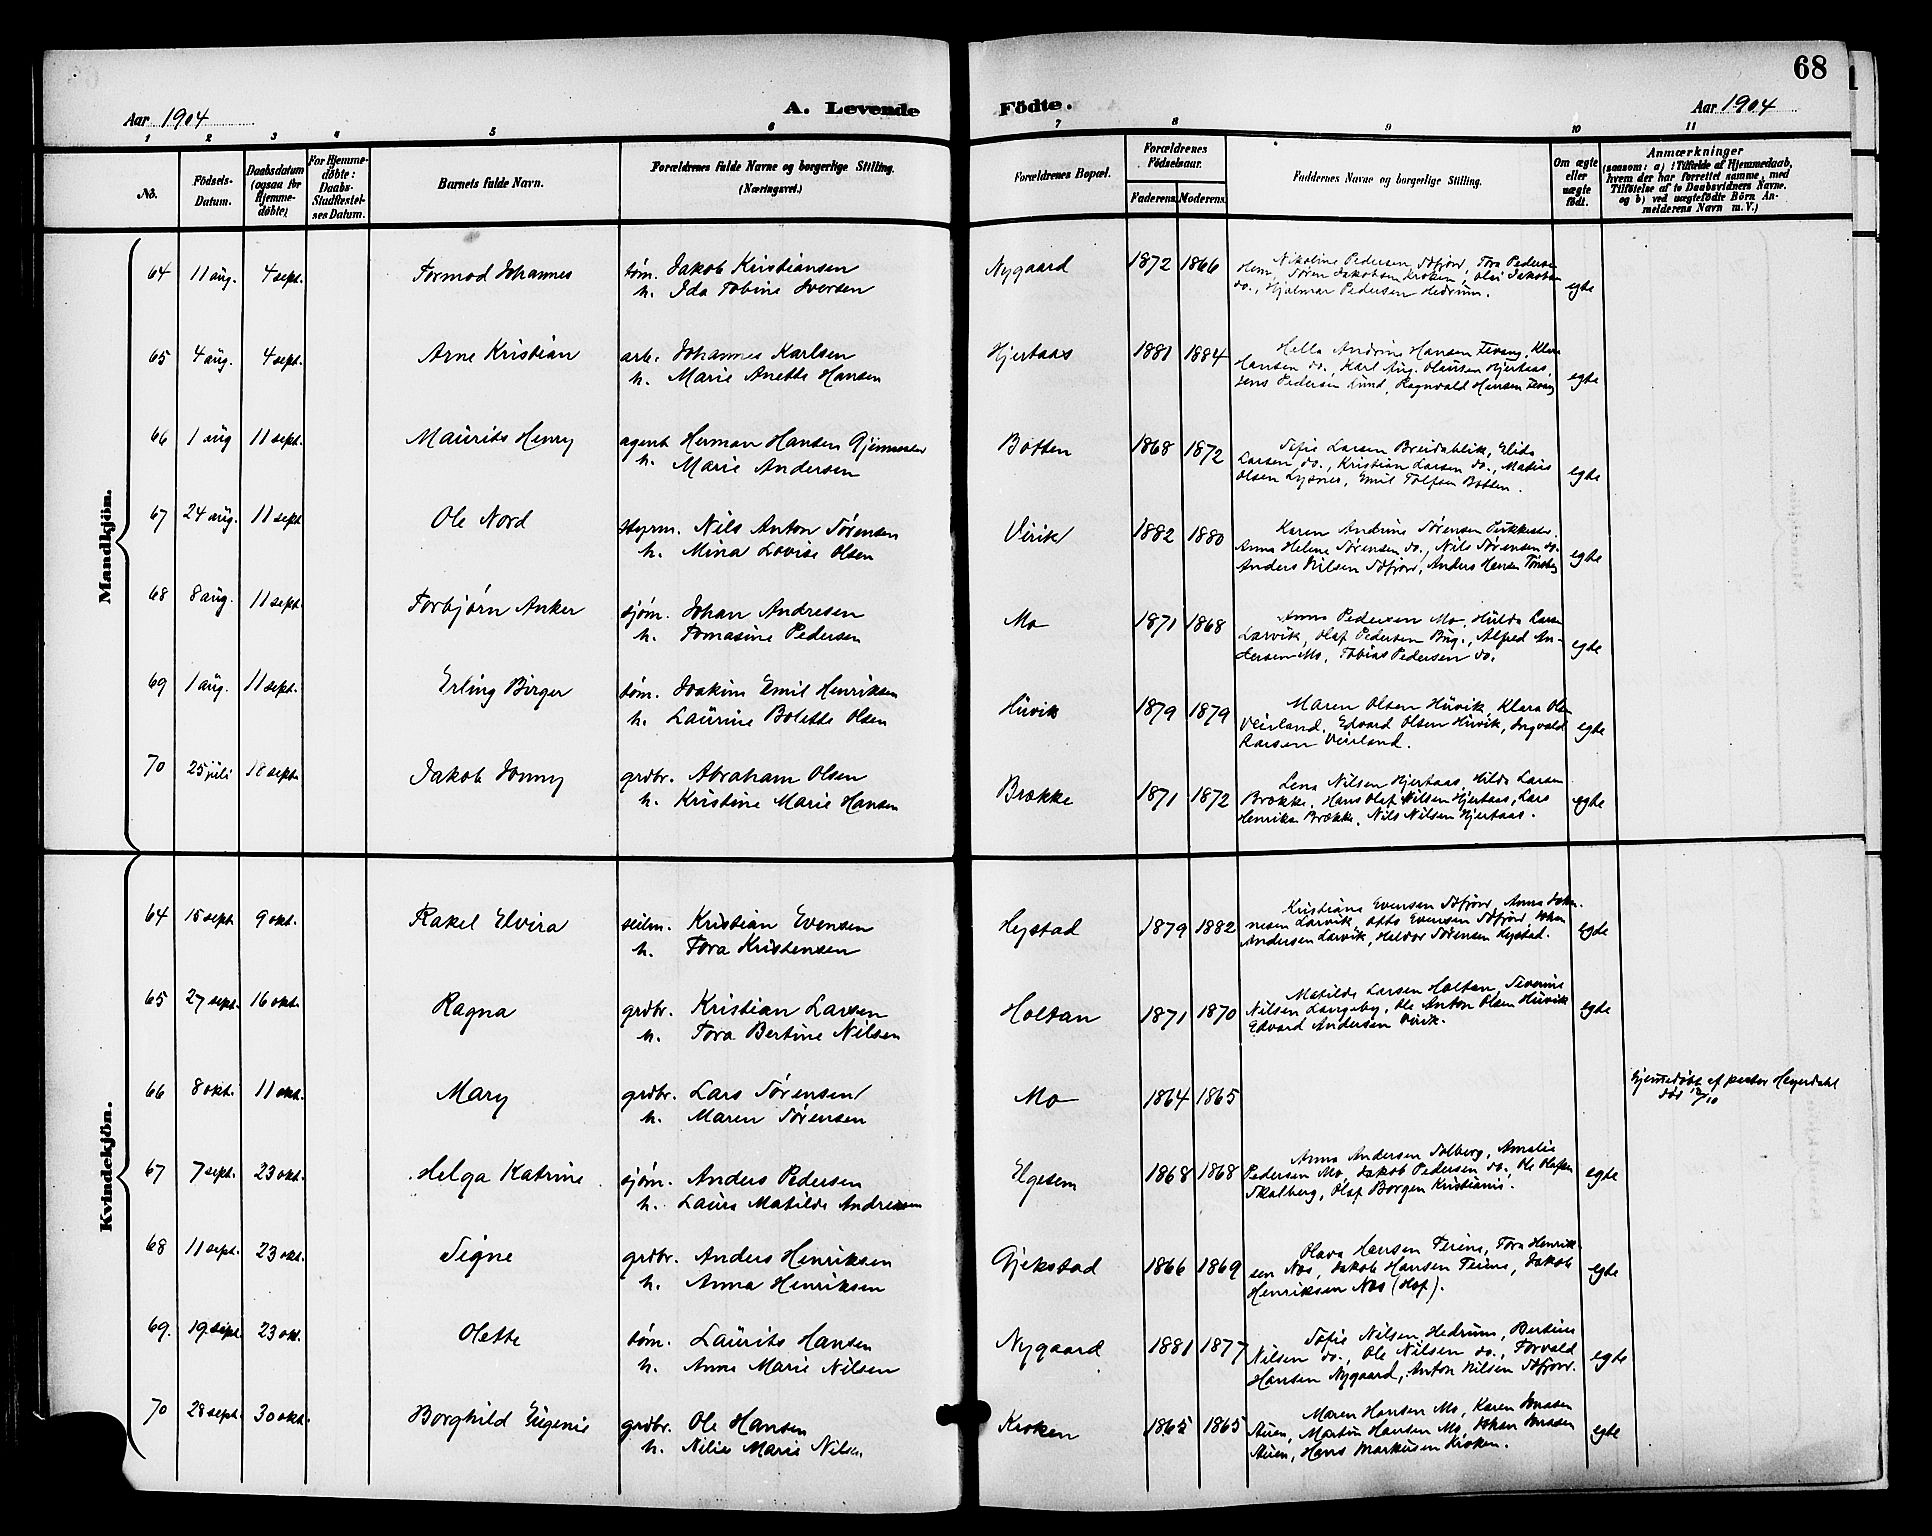 68
Aar 1904
A. Levende Födte.
Aar 1904
1 2 3 4 5 6 7 8 9 10 11
No.
Födsels-
Datum.
Daabsdatum
(ogsaa for
Hjemme-
döbte)
For Hjemme-
døbte:
Daabs-
Stadfæstel-
ses Datum.
Barnets fulde Navn.
Forældrenes fulde Navne og borgerlige Stilling.
(Næringsvei.)
Forældrenes Bopæl.
Forældrenes
Födselsaar.
Faderens. Moderens.
Faddernes Navne og borgerlige Stilling.
Om ægte
eller
uægte
født.
Anmærkninger
(saasom: a) i Tilfælde af Hjemmedaab,
hvem der har forrettet samme, med
Tilföielse af to Daabsvidners Navne.
og b) ved uægtefødte Börn An-
melderens Navn m. V.)
Mandkjön.
64 11 aug. 4 sept. Tormod Johannes tøm. Jakob Kristiansen
h. Ida Tobine Iversen
Nygaard 1872 1866
Nikoline Pedersen Sdfjord, Tora Pedersen
Hem, Søren Jakobsen Kroken, Olai Jakobsen
do., Hjalmar Pedersen Hedrum.
egte
65 4 aug. 4 sept. Arne Kristian arb. Johannes Karlsen
h. Marie Anette Hansen
Hjertaas 1881 1884
Hella Andrine Hansen Tevang, Klara
Hansen do., Karl Aug. Olausen Hjertaas,
Jens Pedersen Lund, Ragnvald Hansen Tevang
egte
66 1 aug 11 sept. Maurits Henry agent Herman Hansen
h. Marie Andersen
Botten 1868 1872
Sofie Larsen Breidablik, Elida
Larsen do., Kristian Larsen do., Matias
Olsen Lysnes, Emil Tolfsen Botten.
egte
67 24 aug. 11 sept Ole Nord styrm. Nils Anton Sørensen
h. Mina Lovise Olsen
Virik 1882 1880
Karen Andrine Sørensen
Anna Helene Sørensen do., Nils Sørensen do.
Anders Nilsen Sdfjord, Anders Hansen Tønsberg
egte
68 8 aug. 11 sept. Torbjørn Anker sjøm. Johan Andresen
h. Tomasine Pedersen
Mo 1871 1868
Anna Pedersen Mo, Hulda Larsen
Larvik, Olaf Pedersen Bug., Alfred An-
dersen Mo, Tobias Pedersen do.
egte
69 1 aug. 11 sept. Erling Birger tøm. Joakim Emil Henriksen
h. Laurine Bolette Olsen
Huvik 1879 1879
Maren Olsen Huvik, Klara Olsen
Veirland, Edvard Olsen Huvik, Ingvald
Larsen Veirland.
egte
70 25 juli 18 sept. Jakob Jonny grdbr. Abraham Olsen
h. Kristine Marie Hansen
Brække 1871 1872
Lena Nilsen Hjertaas, Hilda Larsen
Brække, Hans Olaf Nilsen Hjertaas, Lars
Henriksen Brække, Nils Nilsen Hjertaas.
egte
Kvindekjön.
64 15 sept 9 okt. Rakel Elvira seilm. Kristian Evensen
h. Tora Kristensen
Hystad 1879 1882
Kristiane Evensen Sdfjord, Anna Johan-
nesen Larvik, Otto Evensen Sdfjord, Johan
Andersen Larvik, Haldor Sørensen Hystad.
egte
65 27 sept. 16 okt. Ragna grdbr. Kristian Larsen
h. Tora Bertine Nilsen
Holtan 1871 1870
Matilde Larsen Holtan, Severine
Nilsen Langeby, Ole Anton Olsen Huvik
Edvard Andersen Virik.
egte
66 8 okt. 11 okt. Mary grdbr. Lars Sørensen
h. Maren Sørensen
Mo 1864 1865
Hjemmedøbt af pastor Heyerdahl
død 12/10
67 7 sept. 23 okt. Helga Katrine sjøm. Anders Pedersen
h. Laura Matilde Andresen
Elgesem 1868 1868
Anna Andersen Solberg, Amalie
Pedersen Mo, Jakob Pedersen do., Ole Olafsen
Skalberg, Olaf Borgen Kristiania.
egte
68 11 sept. 23 okt. Signe grdbr. Anders Henriksen
h. Anna Henriksen
Gjekstad 1866 1869
Olava Hansen Feiene, Tora Henrik-
sen Nas, Jakob Hansen Feiene, Jakob
Henriksen Nas (Hof).
egte
69. 19. sept. 23 okt. Olette tøm. Laurits Hansen
h. Anna Marie Nilsen
Nygaard 1881 1877
Sofie Nilsen Hedrum, Bertine
Nilsen do., Ole Nilsen do., Torvald
Hansen Nygaard, Anton Nilsen Sdfjord.
egte
70 28 sept. 30 okt. Borghild Eugenie grdbr. Ole Hansen
h. Nilia Marie Nilsen
Kroken 1865 1865
Maren Hansen Mo, Karen Jonassen
Auen, Martin Hansen Mo, Johan Jonassen
Auen, Hans Markusen Kroken.
egte